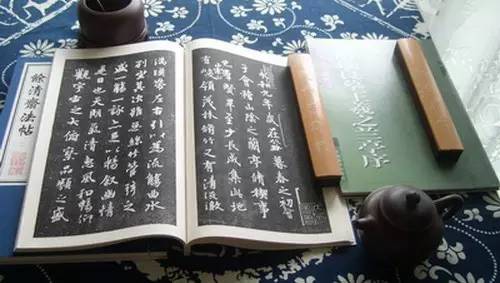 永和九年歲在癸丑暮春之初會
于會稽山陰之蘭亭脩禊事
也群賢畢至少長咸集此地
有峻領茂林脩竹又有清流激
湍暎帶左右引以為流觴曲水
列坐其次雖無絲竹管弦之
盛一觴一詠亦足以暢敘幽情
是日也天朗氣清惠風和暢仰
觀宇宙之大俯察品類之盛
餘清齋法帖
羲之蘭亭序